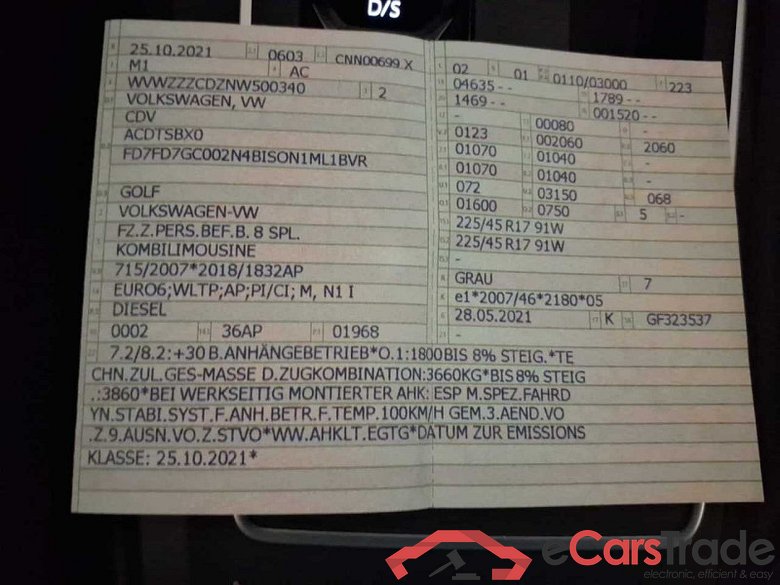 D/S
25.10.2021 0603 CNN00699 X
M1 AC
WVWZZZCDZNW500340 2
VOLKSWAGEN, VW
CDV
ACDTSBX0
FD7FD7GC002N4BISON1ML1BVR
GOLF
VOLKSWAGEN-VW
FZ.Z.PERS.BEF.B. 8 SPL.
KOMBILIMOUSINE
715/2007*2018/1832AP
EURO6;WLTP;AP;PI/CI; M, N1 I
DIESEL
0002 36AP 01968
02 01 0110/03000 223
04635 - - 1789 - -
1469 - - 001520 - -
- 00080 -
0123 002060 2060
01070 01040 -
01070 01040 -
072 03150 068
01600 0750 5 -
225/45 R17 91W
225/45 R17 91W
-
GRAU 7
e1*2007/46*2180*05
28.05.2021 K GF323537
-
7.2/8.2:+30 B.ANHÄNGEBETRIEB*O.1:1800 BIS 8% STEIG.*TE
CHN.ZUL.GES-MASSE D.ZUGKOMBINATION:3660KG*BIS 8% STEIG
.:3860*BEI WERKSEITIG MONTIERTER AHK: ESP M.SPEZ.FAHRD
YN.STABI.SYST.F.ANH.BETR.F.TEMP.100KM/H GEM.3.AEND.VO
.Z.9.AUSN.VO.Z.STVO*WW.AHKLT.EGTG*DATUM ZUR EMISSIONS
KLASSE: 25.10.2021*
eCarsTrade
electronic, efficient & easy